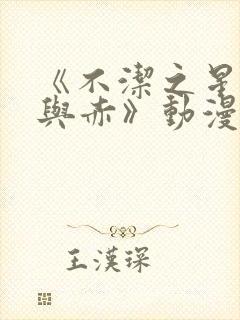 《不潔之星
與赤》動漫
王漢琛